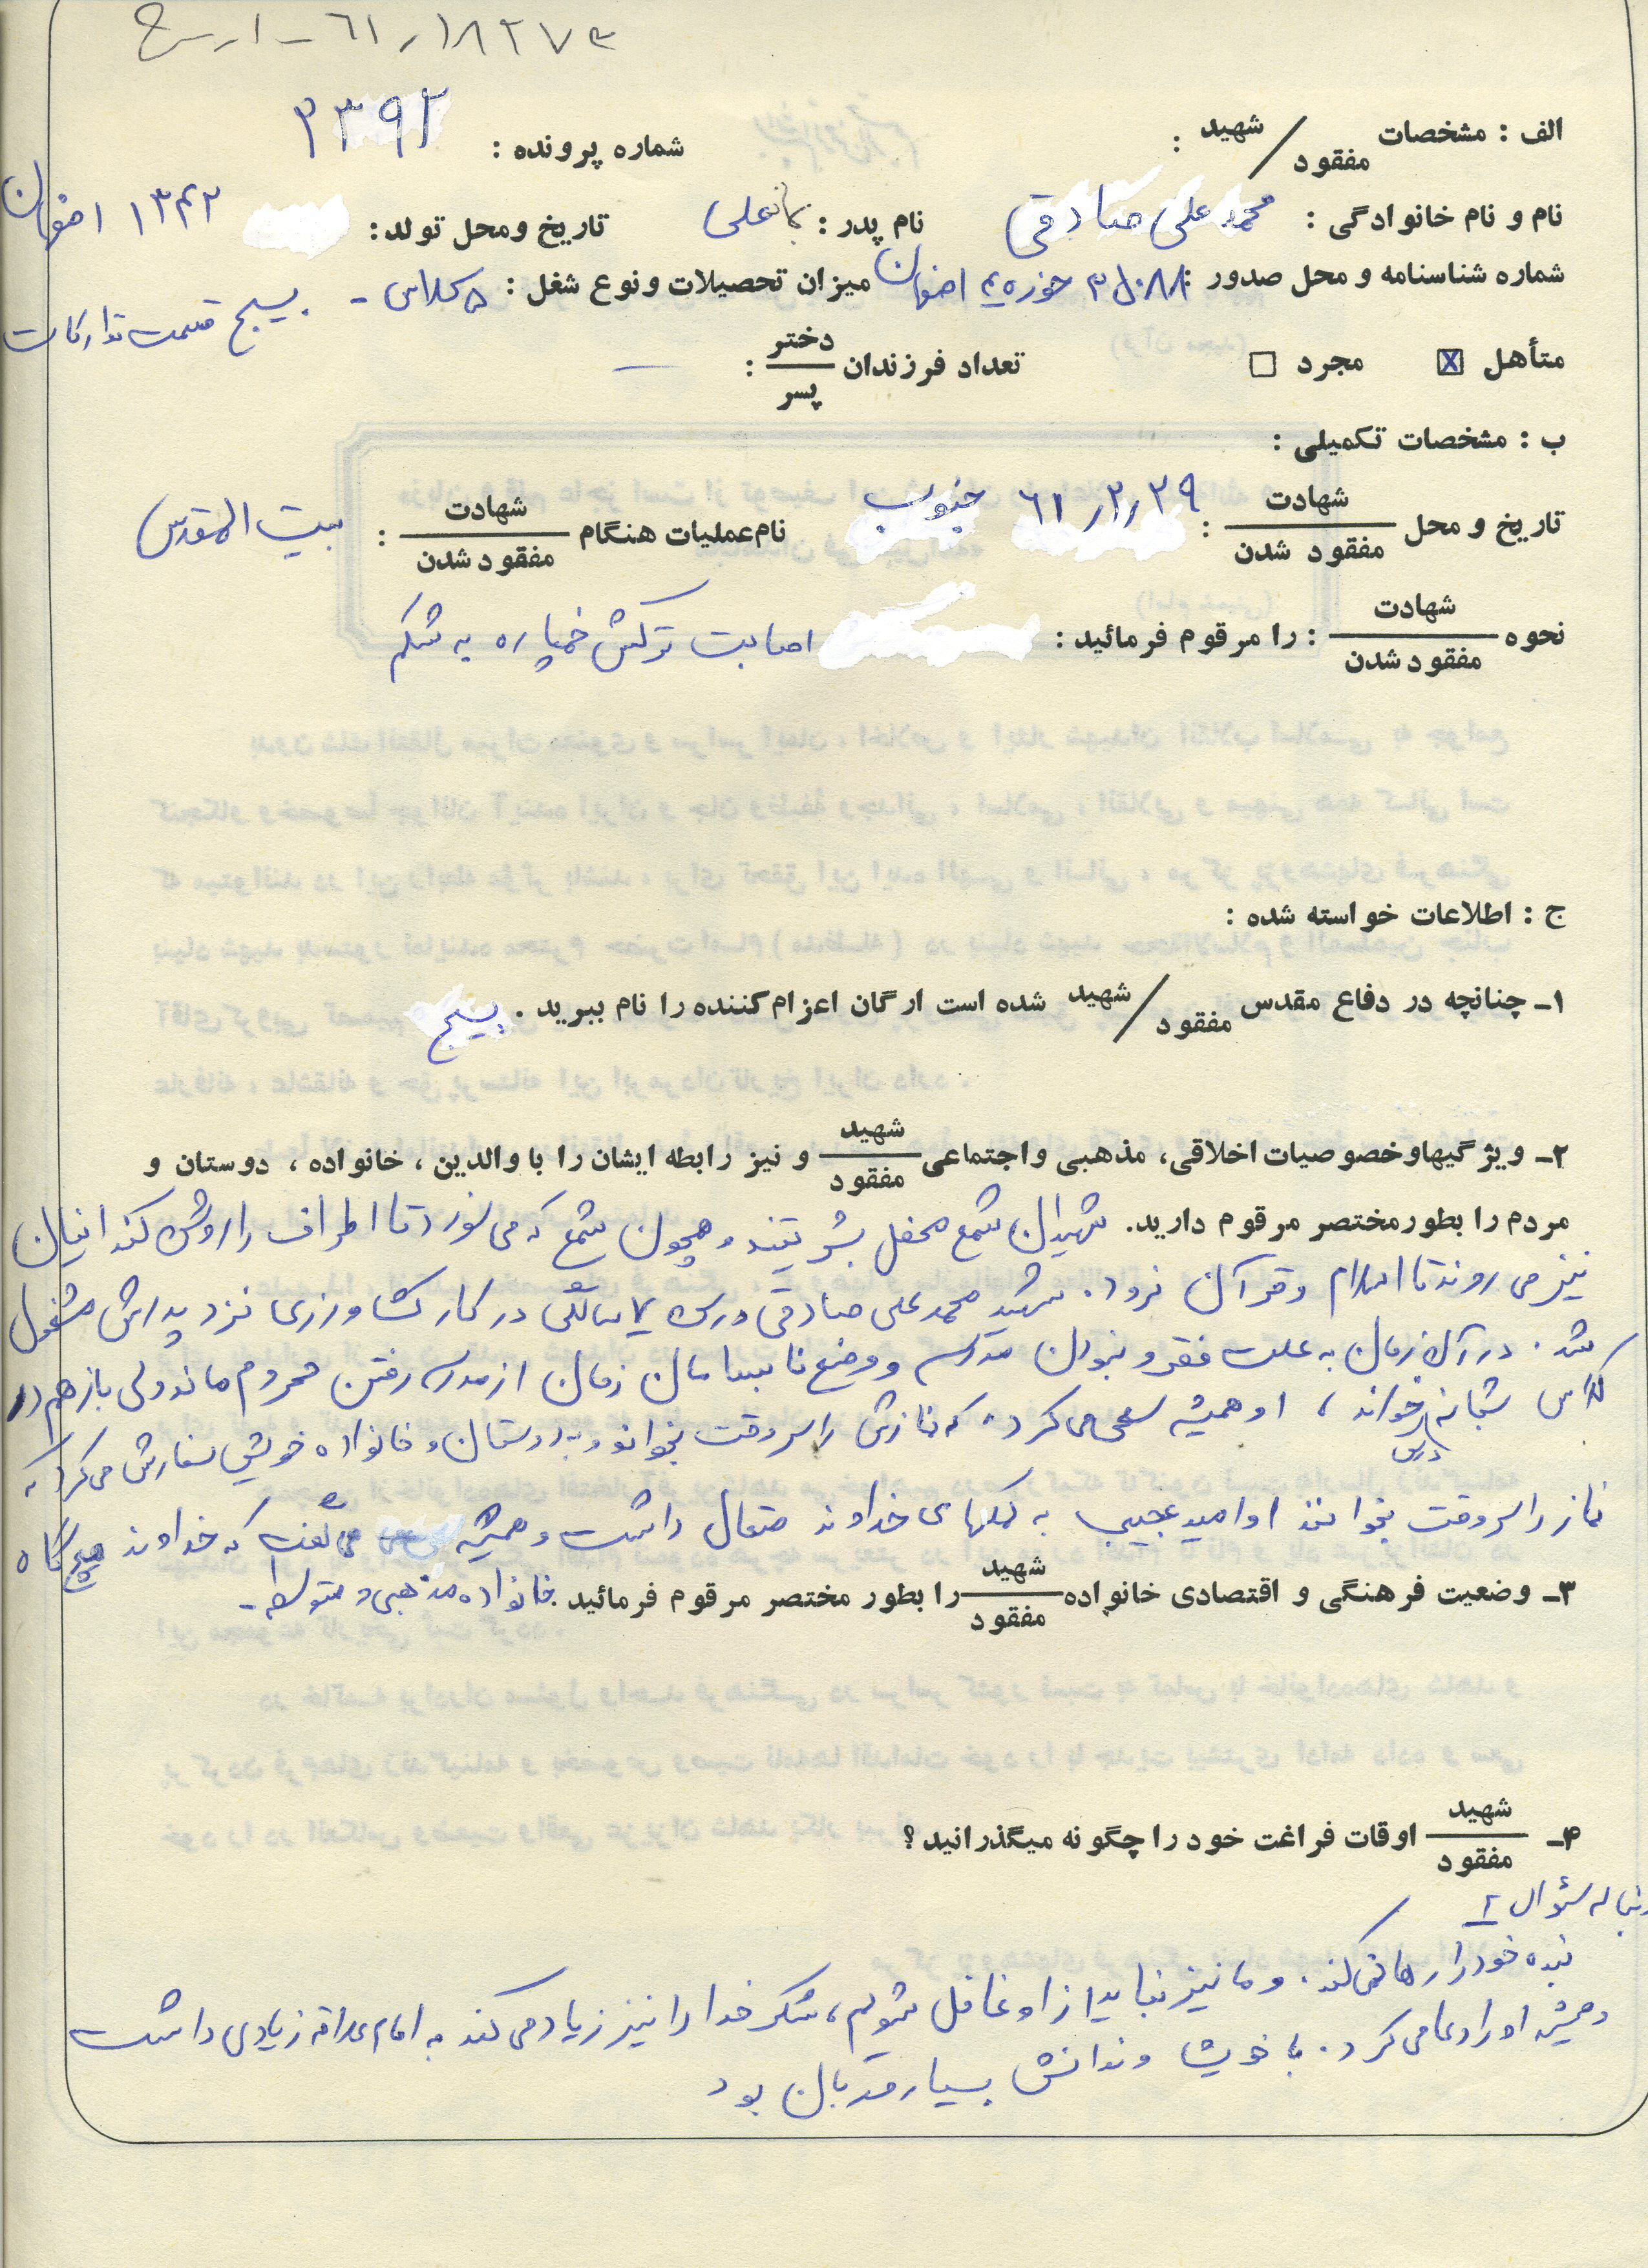 ۶۱٫۱۸۲۷۳
الف : مشخصات شهید / مفقود :
شماره پرونده : ۲۳۹۲
نام و نام خانوادگی : محمد علی صادقی نام پدر : علی تاریخ ومحل تولد : ۱۳۴۲ اصفهان
شماره شناسنامه و محل صدور : حوزه اصفهان میزان تحصیلات ونوع شغل : ۵ کلاس - بسیج قسمت تدارکات
متأهل ☒ مجرد ☐ تعداد فرزندان دختر / پسر : —
ب : مشخصات تکمیلی :
تاریخ و محل شهادت / مفقود شدن : ۶۱٫۲٫۲۹ جنوب نام عملیات هنگام شهادت / مفقود شدن : بیت المقدس
نحوه شهادت / مفقود شدن : را مرقوم فرمائید : اصابت ترکش خمپاره به شکم
ج : اطلاعات خواسته شده :
۱ـ چنانچه در دفاع مقدس شهید / مفقود شده است ارگان اعزام کننده را نام ببرید . بسیج
۲ـ ویژگیهاوخصوصیات اخلاقی، مذهبی واجتماعی شهید / مفقود و نیز رابطه ایشان را با والدین ، خانواده ، دوستان و
مردم را بطور مختصر مرقوم دارید. شهیدان شمع محفل بشریتند و همچون شمع که می سوزد تا اطراف را روشن کند اینان
نیز می روند تا اسلام و قرآن نرود. شهید محمد علی صادقی در سن ۷ سالگی در کار کشاورزی نزد پدرش مشغول
شد. در آن زمان به علت فقر و نبودن مدرسه و وضع نابسامان زمان از مدرسه رفتن محروم ماند ولی باز هم در
کلاس شبانه درس خواند ، او همیشه سعی می کرد که نمازش را سر وقت بخواند و به دوستان و خانواده خویش سفارش می کرد که
نماز را سر وقت بخوانند او امید عجیبی به کمکهای خداوند متعال داشت و همیشه می گفت که خداوند هیچگاه
۳ـ وضعیت فرهنگی و اقتصادی خانواده شهید / مفقود را بطور مختصر مرقوم فرمائید . خانواده مذهبی و متوسط -
۴ـ شهید / مفقود اوقات فراغت خود را چگونه میگذرانید ؟
دنباله سئوال ۲
بنده خود را رها نمی کند. و ما نیز نباید از او غافل شویم ، شکر خدا را نیز زیاد می کند به امام علاقه زیادی داشت
و همیشه او را دعا می کرد. با خویشاوندانش بسیار مهربان بود